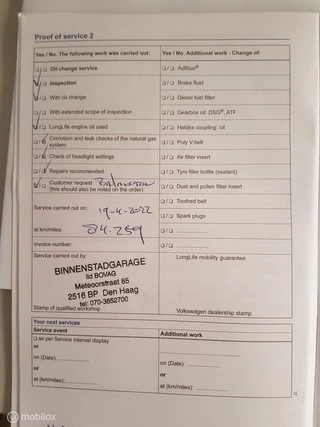 Proof of service 2
Yes / No. The following work was carried out:
Yes / No. Additional work - Change of:
Oil change service
/ AdBlue®
Inspection
/ Brake fluid
With oil change
/ Diesel fuel filter
With extended scope of inspection
/ Gearbox oil: DSG®, ATF
LongLife engine oil used
/ Haldex coupling: oil
Corrosion and leak checks of the natural gas
system
/ Poly V-belt
Check of headlight settings
/ Air filter insert
Repairs recommended
/ Tyre filler bottle (sealant)
Customer request
(this should also be noted on the order)
/ Dust and pollen filter insert
/ Toothed belt
Service carried out on: 19-4-2022
/ Spark plugs
at km/miles): 84.259
Invoice number:
Service carried out by:
LongLife mobility guarantee:
BINNENSTADGARAGE
lid BOVAG
Meteoorstraat 85
2516 BP Den Haag
tel: 070-3852700
Stamp of qualified workshop
Volkswagen dealership stamp
Your next services
Service event
Additional work
as per Service interval display
or
on (Date):
or
at (km/miles):
on (Date):
or
at (km/miles):
mobilox